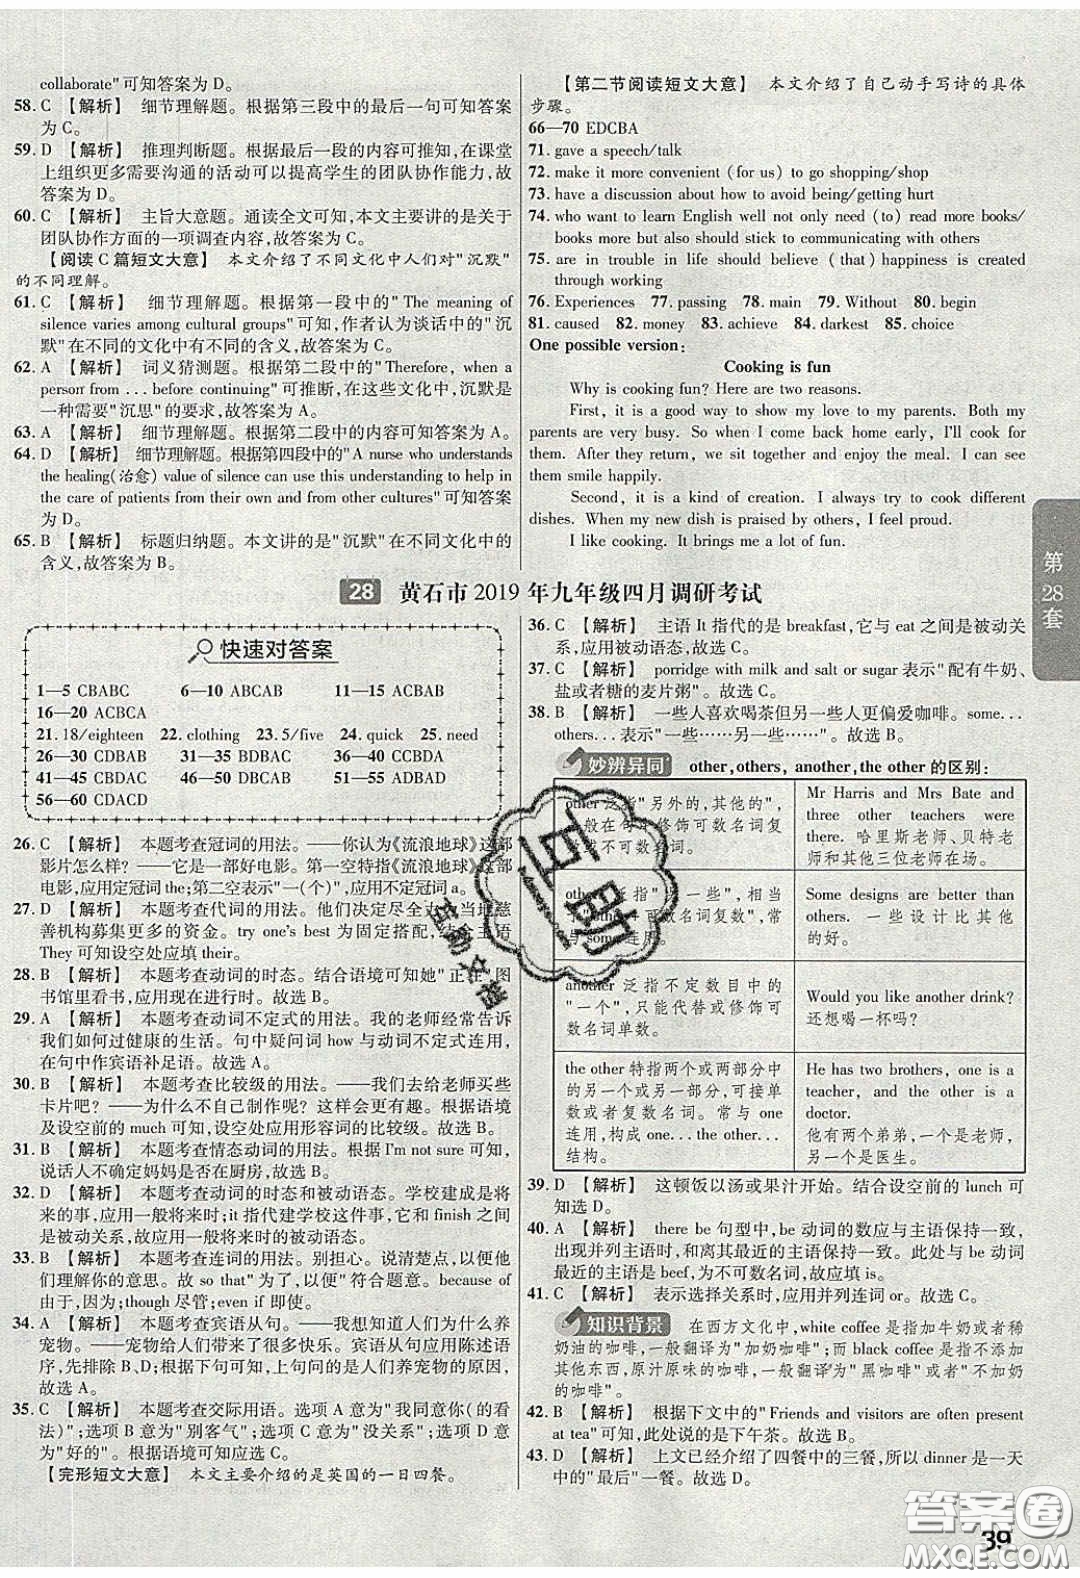 collaborate"可知答案为 D。
58. C 【解析】 细节理解题。根据第三段中的最后一句可知答案
为 C。
59. D 【解析】 推理判断题。根据最后一段的内容可推知,在课堂
上组织更多需要沟通的活动可以提高学生的团队协作能力,故
答案为 D。
60. C 【解析】 主旨大意题。通读全文可知,本文主要讲的是关于
团队协作方面的一项调查内容,故答案为 C。
【阅读 C 篇短文大意】 本文介绍了不同文化中人们对"沉默"
的不同理解。
61. C 【解析】 细节理解题。根据第一段中的"The meaning of
silence varies among cultural groups"可知,作者认为谈话中的"沉
默"在不同的文化中有不同的含义,故答案为 C。
62. A 【解析】 词义猜测题。根据第二段中的"Therefore, when a
person from ... before continuing"可推断,在这些文化中,沉默是
一种需要"沉思"的要求,故答案为 A。
63. A 【解析】 细节理解题。根据第二段中的内容可知答案为 A。
64. D 【解析】 细节理解题。根据第四段中的"A nurse who understands
the healing(治愈) value of silence can use this understanding to help in
the care of patients from their own and from other cultures"可知答案
为 D。
65. B 【解析】 标题归纳题。本文讲的是"沉默"在不同文化中的
含义,故答案为 B。
【第二节阅读短文大意】 本文介绍了自己动手写诗的具体
步骤。
66—70 EDCBA
71. gave a speech/talk
72. make it more convenient (for us) to go shopping/shop
73. have a discussion about how to avoid being/getting hurt
74. who want to learn English well not only need (to) read more books/
books more but also should stick to communicating with others
75. are in trouble in life should believe (that) happiness is created
through working
76. Experiences 77. passing 78. main 79. Without 80. begin
81. caused 82. money 83. achieve 84. darkest 85. choice
One possible version:
Cooking is fun
Why is cooking fun? Here are two reasons.
First, it is a good way to show my love to my parents. Both my
parents are very busy. So when I come back home early, I'll cook for
them. After they return, we sit together and enjoy the meal. I can see
them smile happily.
Second, it is a kind of creation. I always try to cook different
dishes. When my new dish is praised by others, I feel proud.
I like cooking. It brings me a lot of fun.
第28套
28 黄石市 2019 年九年级四月调研考试
快速对答案
1—5 CBABC 6—10 ABCAB 11—15 ACBAB
16—20 ACBCA
21. 18/eighteen 22. clothing 23. 5/five 24. quick 25. need
26—30 CDBAB 31—35 BDBAC 36—40 CCBDA
41—45 CBDAC 46—50 DBCAB 51—55 ADBAD
56—60 CDACD
26. C 【解析】 本题考查冠词的用法。——你认为《流浪地球》这部
影片怎么样? ——它是一部好电影。第一空特指《流浪地球》这部
电影,应用定冠词 the;第二空表示"一(个)",应用不定冠词 a。
27. D 【解析】 本题考查代词的用法。他们决定尽全力为当地慈
善机构募集更多的资金。try one's best 为固定搭配,结合主语
They 可知设空处应填 their。
28. B 【解析】 本题考查动词的时态。结合语境可知她"正在"图
书馆里看书,应用现在进行时。故选 B。
29. A 【解析】 本题考查动词不定式的用法。我的老师经常告诉
我们如何过健康的生活。句中疑问词 how 与动词不定式连用,
在句中作宾语补足语。故选 A。
30. B 【解析】 本题考查比较级的用法。——我们去给老师买些
卡片吧? ——为什么不自己制作呢? 这样会更有趣。根据语境
及设空前的 much 可知,设空处应用形容词的比较级。故选 B。
31. B 【解析】 本题考查情态动词的用法。根据 I'm not sure 可知,
说话人不确定妈妈是否在厨房,故选 B。
32. D 【解析】 本题考查动词的时态和被动语态。学校建成是将
来的事,应用一般将来时;it 指代建学校这件事,它和 finish 之间
是被动关系,故应用一般将来时的被动语态。故选 D。
33. B 【解析】 本题考查连词的用法。别担心。说清楚点,以便他
们理解你的意思。故 so that"为了,以便"符合题意。because of
由于,因为;though 尽管;even if 即使。
34. A 【解析】 本题考查宾语从句。——我想知道人们为什么养
宠物。——宠物给人们带来了很多快乐。宾语从句应用陈述语
序,先排除 B、D;根据下句可知,上句问的是人们养宠物的原因,
故选 A。
35. C 【解析】 本题考查交际用语。选项 A 意为"我同意你(的看
法)";选项 B 意为"别客气";选项 C 意为"没关系";选项 D 意
为"好的"。根据语境可知应选 C。
【完形短文大意】 本文主要介绍的是英国的一日四餐。
36. C 【解析】 主语 It 指代的是 breakfast,它与 eat 之间是被动关
系,应用被动语态,故选 C。
37. C 【解析】 porridge with milk and salt or sugar 表示"配有牛奶、
盐或者糖的麦片粥"。故选 C。
38. B 【解析】 一些人喜欢喝茶但另一些人更偏爱咖啡。some...
others...表示"一些……另一些……"。故选 B。
妙辨异同 other,others, another,the other 的区别:
other 泛指"另外的,其他的",
一般在句中修饰可数名词复
数或不可数名词。
Mr Harris and Mrs Bate and
three other teachers were
there. 哈里斯老师、贝特老
师和其他三位老师在场。
others 泛指"另一些",相当
于"other+可数名词复数",常
与 some 连用。
Some designs are better than
others. 一些设计比其他
的好。
another 泛指不定数目中的
"一个",只能代替或修饰可
数名词单数。
Would you like another drink?
还想喝一杯吗?
the other 特指两个或两部分中
的另一个或另一部分,可接单
数或者复数名词。常与 one
连用,构成 one...the other...
结构。
He has two brothers, one is a
teacher, and the other is a
doctor.
他有两个弟弟,一个是老师,
另一个是医生。
39. D 【解析】 这顿饭以汤或果汁开始。结合设空前的 lunch 可
知选 D。
40. A 【解析】 there be 句型中,be 动词的数应与主语保持一致,
出现并列主语时,和离其最近的主语保持一致。此处与 be 动词
最近的主语是 beef,为不可数名词,故应填 is。
41. C 【解析】 表示选择关系时,应用并列连词 or。故选 C。
知识背景 在西方文化中,white coffee 是指加牛奶或者稀
奶油的咖啡,一般翻译为"加奶咖啡";而 black coffee 是指不添加
其他东西,原汁原味的咖啡,一般翻译为"黑咖啡"或"不加奶
的咖啡"。
42. B 【解析】 根据下文中的"Friends and visitors are often present
at tea"可知,此处说的是下午茶。故选 B。
43. D 【解析】 上文已经介绍了四餐中的三餐,所以 dinner 是一天
中的"最后"一餐。故选 D。
答案圈
MXQE.COM
39